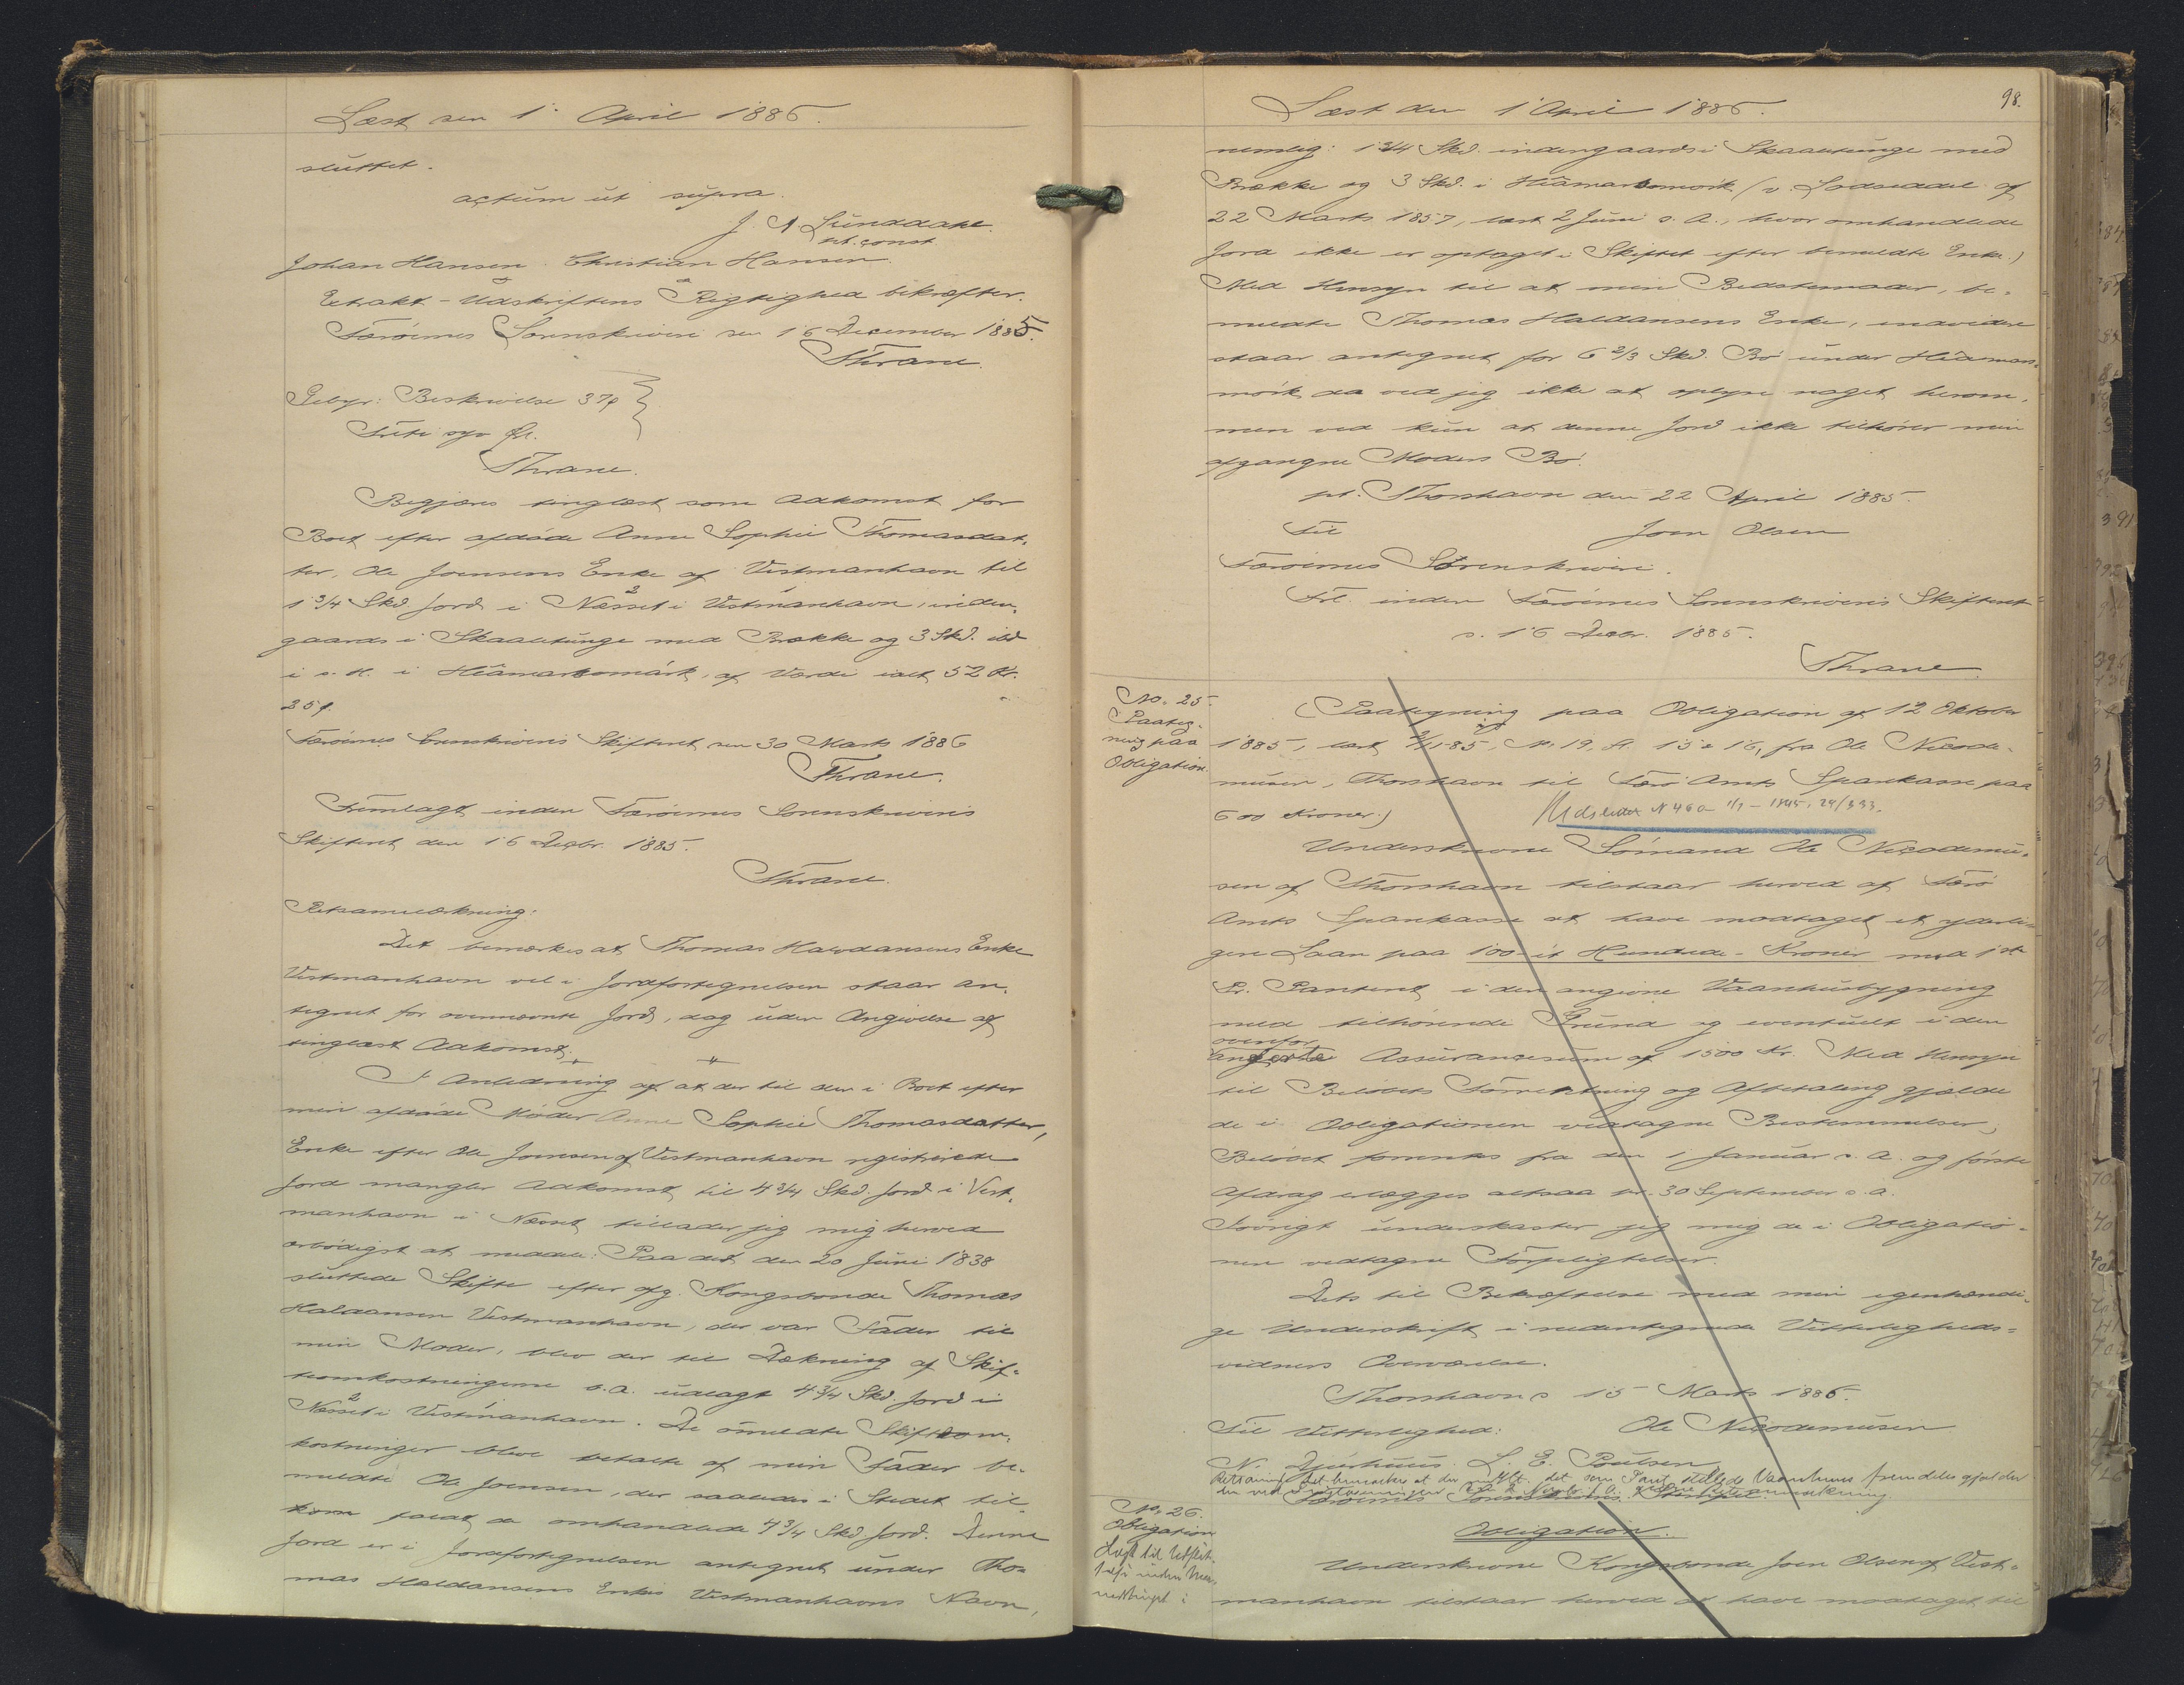 Læst den 1 April 1886.
sluttet.
actum ut supra.
J. A. Lunddahl.
cst. const.
Johan Hansen Christian Hansen.
Extrakt-Udskriftens Rigtighed bekræfter.
Færøernes Sorenskriveri den 16 December 1885.
Thrane.
Gebyr: Beskrivelse 37ø
Thrane.
Begjæres tinglæst som Adkomst for
Boet efter afdøde Anne Sophie Thomasdat-
ter, Ole Joensens Enke af Vestmanhavn til
1 3/4 Skd. Jord i Næsset i Vestmanhavn, inden-
gaards i Skaaletunge med Brække og 3 Skd.
i s. St. i Hiamarkomørk, af Værdi ialt 52 Kr.
25ø.
Færøernes Sorenskriveris Skifteret den 30 Marts 1886
Thrane.
Fremlagt inden Færøernes Sorenskriveris
Skifteret den 16 Decbr. 1885.
Thrane.
Retsanmærkning:
Det bemærkes at Thomas Haldansens Enke
Vestmanhavn vel i Jordfortegnelsen staar an-
tegnet for ovennævnte Jord, dog uden Angivelse af
tinglæst Adkomst.
I Anledning af at der til den i Boet efter
min afdøde Moder Anne Sophie Thomasdatter,
Enke efter Ole Joensen af Vestmanhavn registrerede
Jord mangler Adkomst til 4 3/4 Skd. Jord i Vest-
manhavn i Næsset tillader jeg mig herved
ærbødigst at meddele: Paa det den 20 Juni 1838
sluttede Skifte efter afg. Kongsbonde Thomas
Haldansen Vestmanhavn, der var Fader til
min Moder, blev der til Dækning af Skif-
teomkostningerne b.a. udlagt 4 3/4 Skd. Jord i
Næsset i Vestmanhavn. De ommeldte Skifteom-
kostninger bleve betalte af min Fader be-
meldte Ole Joensen, der saaledes i Stedet til-
kom faldt de omhandlede 4 3/4 Skd. Jord. Denne
Jord er i Jordfortegnelsen antegnet under Tho-
mas Haldansens Enkes Vestmanhavns Navn,
98.
Læst den 1 April 1886.
nemlig: 1 3/4 Skd. indengaards i Skaaletunge med
Brække og 3 Skd. i Hiamarkomørk (v. Lodseddel af
22 Marts 1857, læst 2 Juni s. A., hvor omhandlede
Jord ikke er optaget i Skiftet efter bemeldte Enke.)
Med Hensyn til at min Bedstemoder, be-
meldte Thomas Haldansens Enke, endvidere
staar antegnet for 6 2/3 Skd. Bø under Hiamar-
mørk da ved jeg ikke at oplyse noget herom,
men ved kun at denne Jord ikke tilhører min
afgangne Moders Bo.
pt. Thorshavn den 22 April 1885.
Til Joen Olsen
Færøernes Sorenskriveri.
Frl. inden Færøernes Sorenskriveris Skifteret
d. 16 Decbr. 1885.
Thrane
No. 25.
Paateg-
ning paa
Obligation.
(Paategning paa Obligation af 12 Oktober
1885, læst 2/11 85, No. 19, fra Ole Nicode-
musen, Thorshavn til Færø Amts Sparekasse paa
600 Kroner.)
Udslettet N 46a 1/7 - 1895, 24/333.
Underskrevne Sømand Ole Nicodemu-
sen af Thorshavn tilstaar herved af Færø
Amts Sparekasse at have modtaget et yderli-
gere Laan paa 100 - et Hundrede - Kroner med 1ste
Pr. Panteret i den angivne Vaanhusbygning
med tilhørende Grund og eventuelt i den
ovenfor
anførte Assurancesum af 1500 Kr. Med Hensyn
til Beløbets Forrentning og Afbetaling gjælde
de i Obligationen vedtagne Bestemmelser,
Beløbet forrentes fra den 1 Januar d. A. og første
Afdrag erlægges altsaa pr. 30 September d. A.
Iøvrigt underkaster jeg mig de i Obligatio-
nen vedtagne Forpligtelser.
Dets til Bekræftelse med min egenhændi-
ge Underskrift i nedentegnede Vitterligheds-
vidners Overværelse.
Thorshavn d 15 Marts 1886.
Til Vitterlighed: Ole Nicodemusen
N. Djurhuus. L. E. Poulsen
Retsanm. Det bemærkes at der det som Pant stillede Vaanhuus fremdeles gjælder
Retsanmærkning
Færøernes Sorenskriveri
No. 26.
Obligation
Obligation.
Underskrevne Kongsbonde Joen Olsen af Vest-
manhavn tilstaar herved at have modtaget til